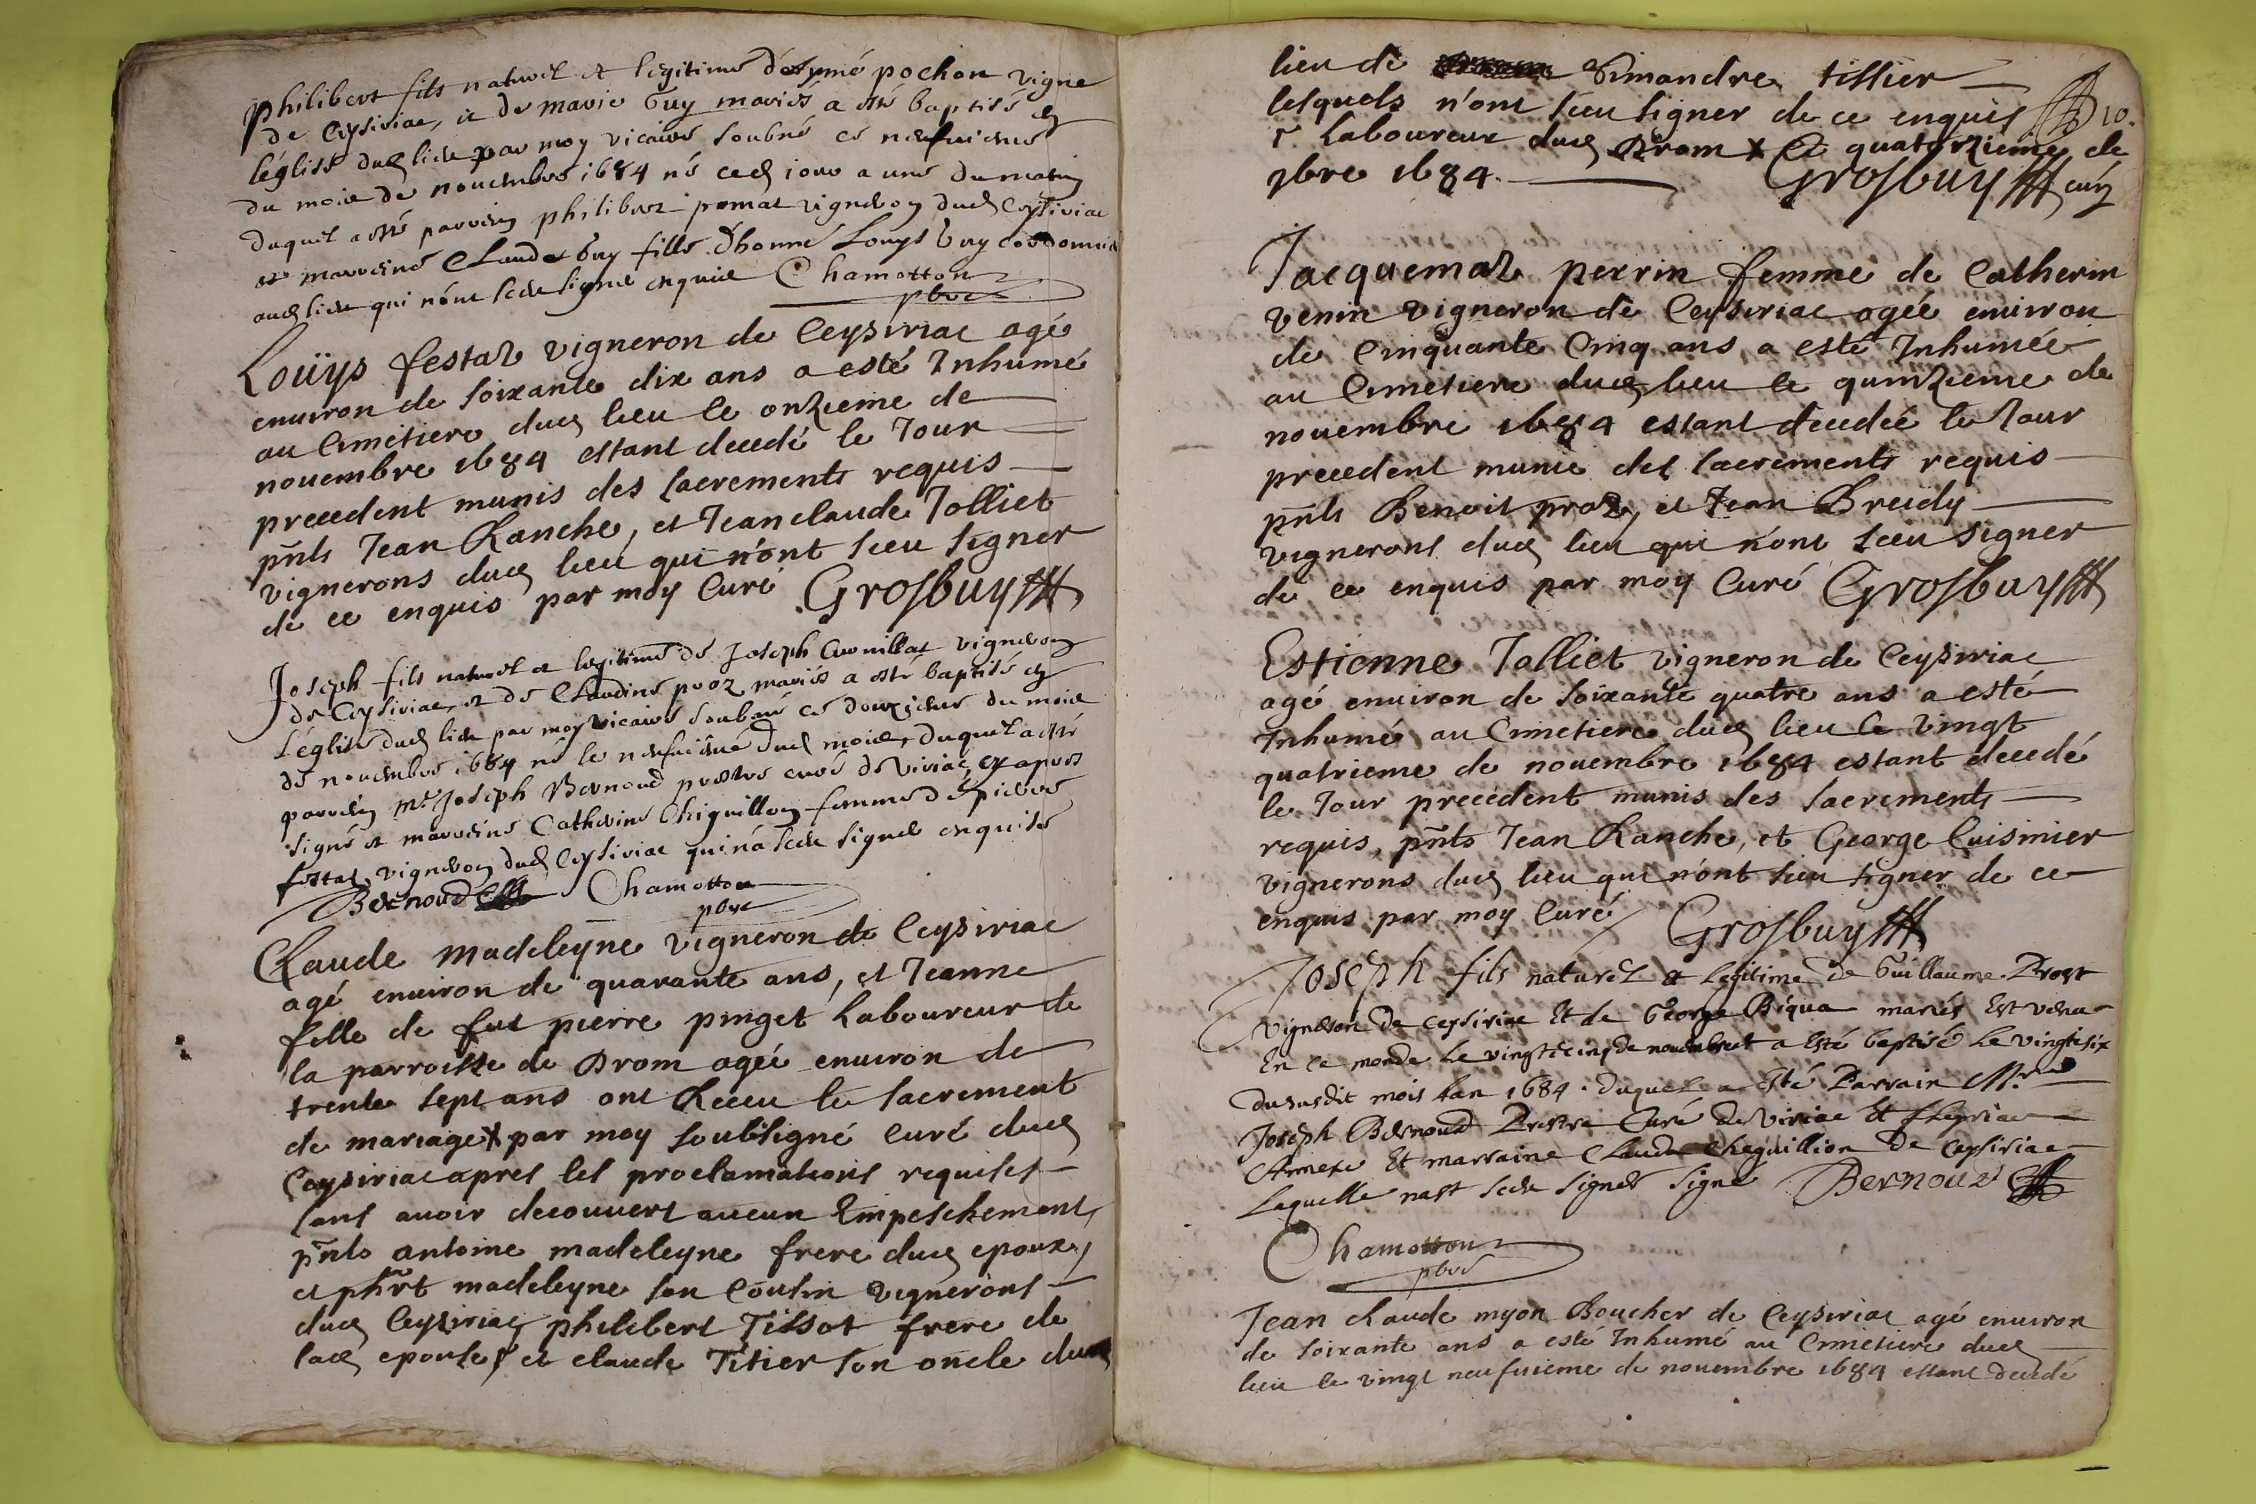 philibert fils naturel et legitime d'esymé pochon vigne
de Ceysiriac, et de marie Guy mariés a esté baptisé en
l'église dud lieu par moy vicaire soubné ce neufuieme
du mois de nouembre 1684 né ced iour a une du matin
duquel a esté parrein philibert pomat vigneron dud Ceysiriac
et marreine Claude Guy fille d'honné Louys Guy cordonnie
aud lieu qui n'ont sceu signer enquis Chamotton
pbre
Loüys festaz vigneron de Ceysiriac agé
enuiron de soixante dix ans a esté Inhumé
au Cimetiere dud lieu le onzieme de
nouembre 1684 estant decedé le Jour
precedent munis des sacrements requis
pnts Jean Ranche, et Jean claude Jolliet
vignerons dud lieu qui n'ont sceu signer
de ce enquis par moy Curé Grosbuy
Joseph fils naturel et legitime de Joseph Cuonillat vigneron
de Ceysiriac, et de Claudine proz mariés a esté baptisé en
L'églisé dud lieu par moy vicaire soubné ce douzieme du mois
de nouembre 1684 né le neufuieme dud mois, duquel a esté
parrein mr Joseph Bernoud prestre curé de Viriac cy apres
signé et marreine Catherine Chiguillon femme de pierre
festaz vigneron dud Ceysiriac qui n'a sceu signer enquise
Bernoud Chamotton
pbre
Claude madeleyne vigneron de Ceysiriac
agé enuiron de quarante ans, et Jeanne
fille de fut pierre pinget Laboureur de
la parroisse de Drom agée enuiron de
trente sept ans ont Receu le sacrement
de mariage x par moy soubsigné Curé dud
Ceysiriac apres les proclamations requises
sans auoir decouuert aucun Empeschement,
pnts antoine madeleyne frere dud epoux,
et phrt madeleyne son Cousin vignerons
dud Ceysiriac, philibert Tissot frere de
lad epouse r et claude Titier son oncle dud
lieu de Simandre tissier
lesquels n'ont sceu signer de ce enquis 10.
r Laboureur dud Drom x Ce quatorzieme de
9bre 1684. Grosbuy curé
Jacquemaz perrin femme de Catherin
venin vigneron de Ceysiriac agée enuiron
de Cinquante Cinq ans a esté Inhumée
au Cimetiere dud lieu le quinzieme de
nouembre 1684 estant decedée le Jour
precedent munie des sacrements requis
pnts Benoit proz, et Jean Breidy
vignerons dud lieu qui n'ont sceu signer
de ce enquis par moy Curé Grosbuy
Estienne Jolliet vigneron de Ceysiriac
agé enuiron de soixante quatre ans a esté
Inhumé au Cimetiere dud lieu le vingt
quatrieme de nouembre 1684 estant decedé
le Jour precedent munis des sacrements
requis, pnts Jean Ranche, et George Cuisinier
vignerons dud lieu qui n'ont sceu signer de ce
enquis par moy Curé Grosbuy
Joseph fils naturel et legitime de Guillaume Prost
vigneron de ceysiriac Et de George Biqua mariés Est venu
En ce monde Le vingt cinq de nouembre et a Esté baptisé Le vingt six
du susdit mois Lan 1684. duquel a Esté Parrain Mre
Joseph Bernoud Prestre Curé de Viriac Et fleyriac
Annexe Et marraine Claude Cheguillion De Ceysiriac
Laquelle nast sceu signer signé Bernoud
Chamotton
pbre
Jean claude myon Boucher de Ceysiriac agé enuiron
de soixante ans a esté Inhumé au Cimetiere dud
lieu le vingt neufuieme de nouembre 1684 estant decedé